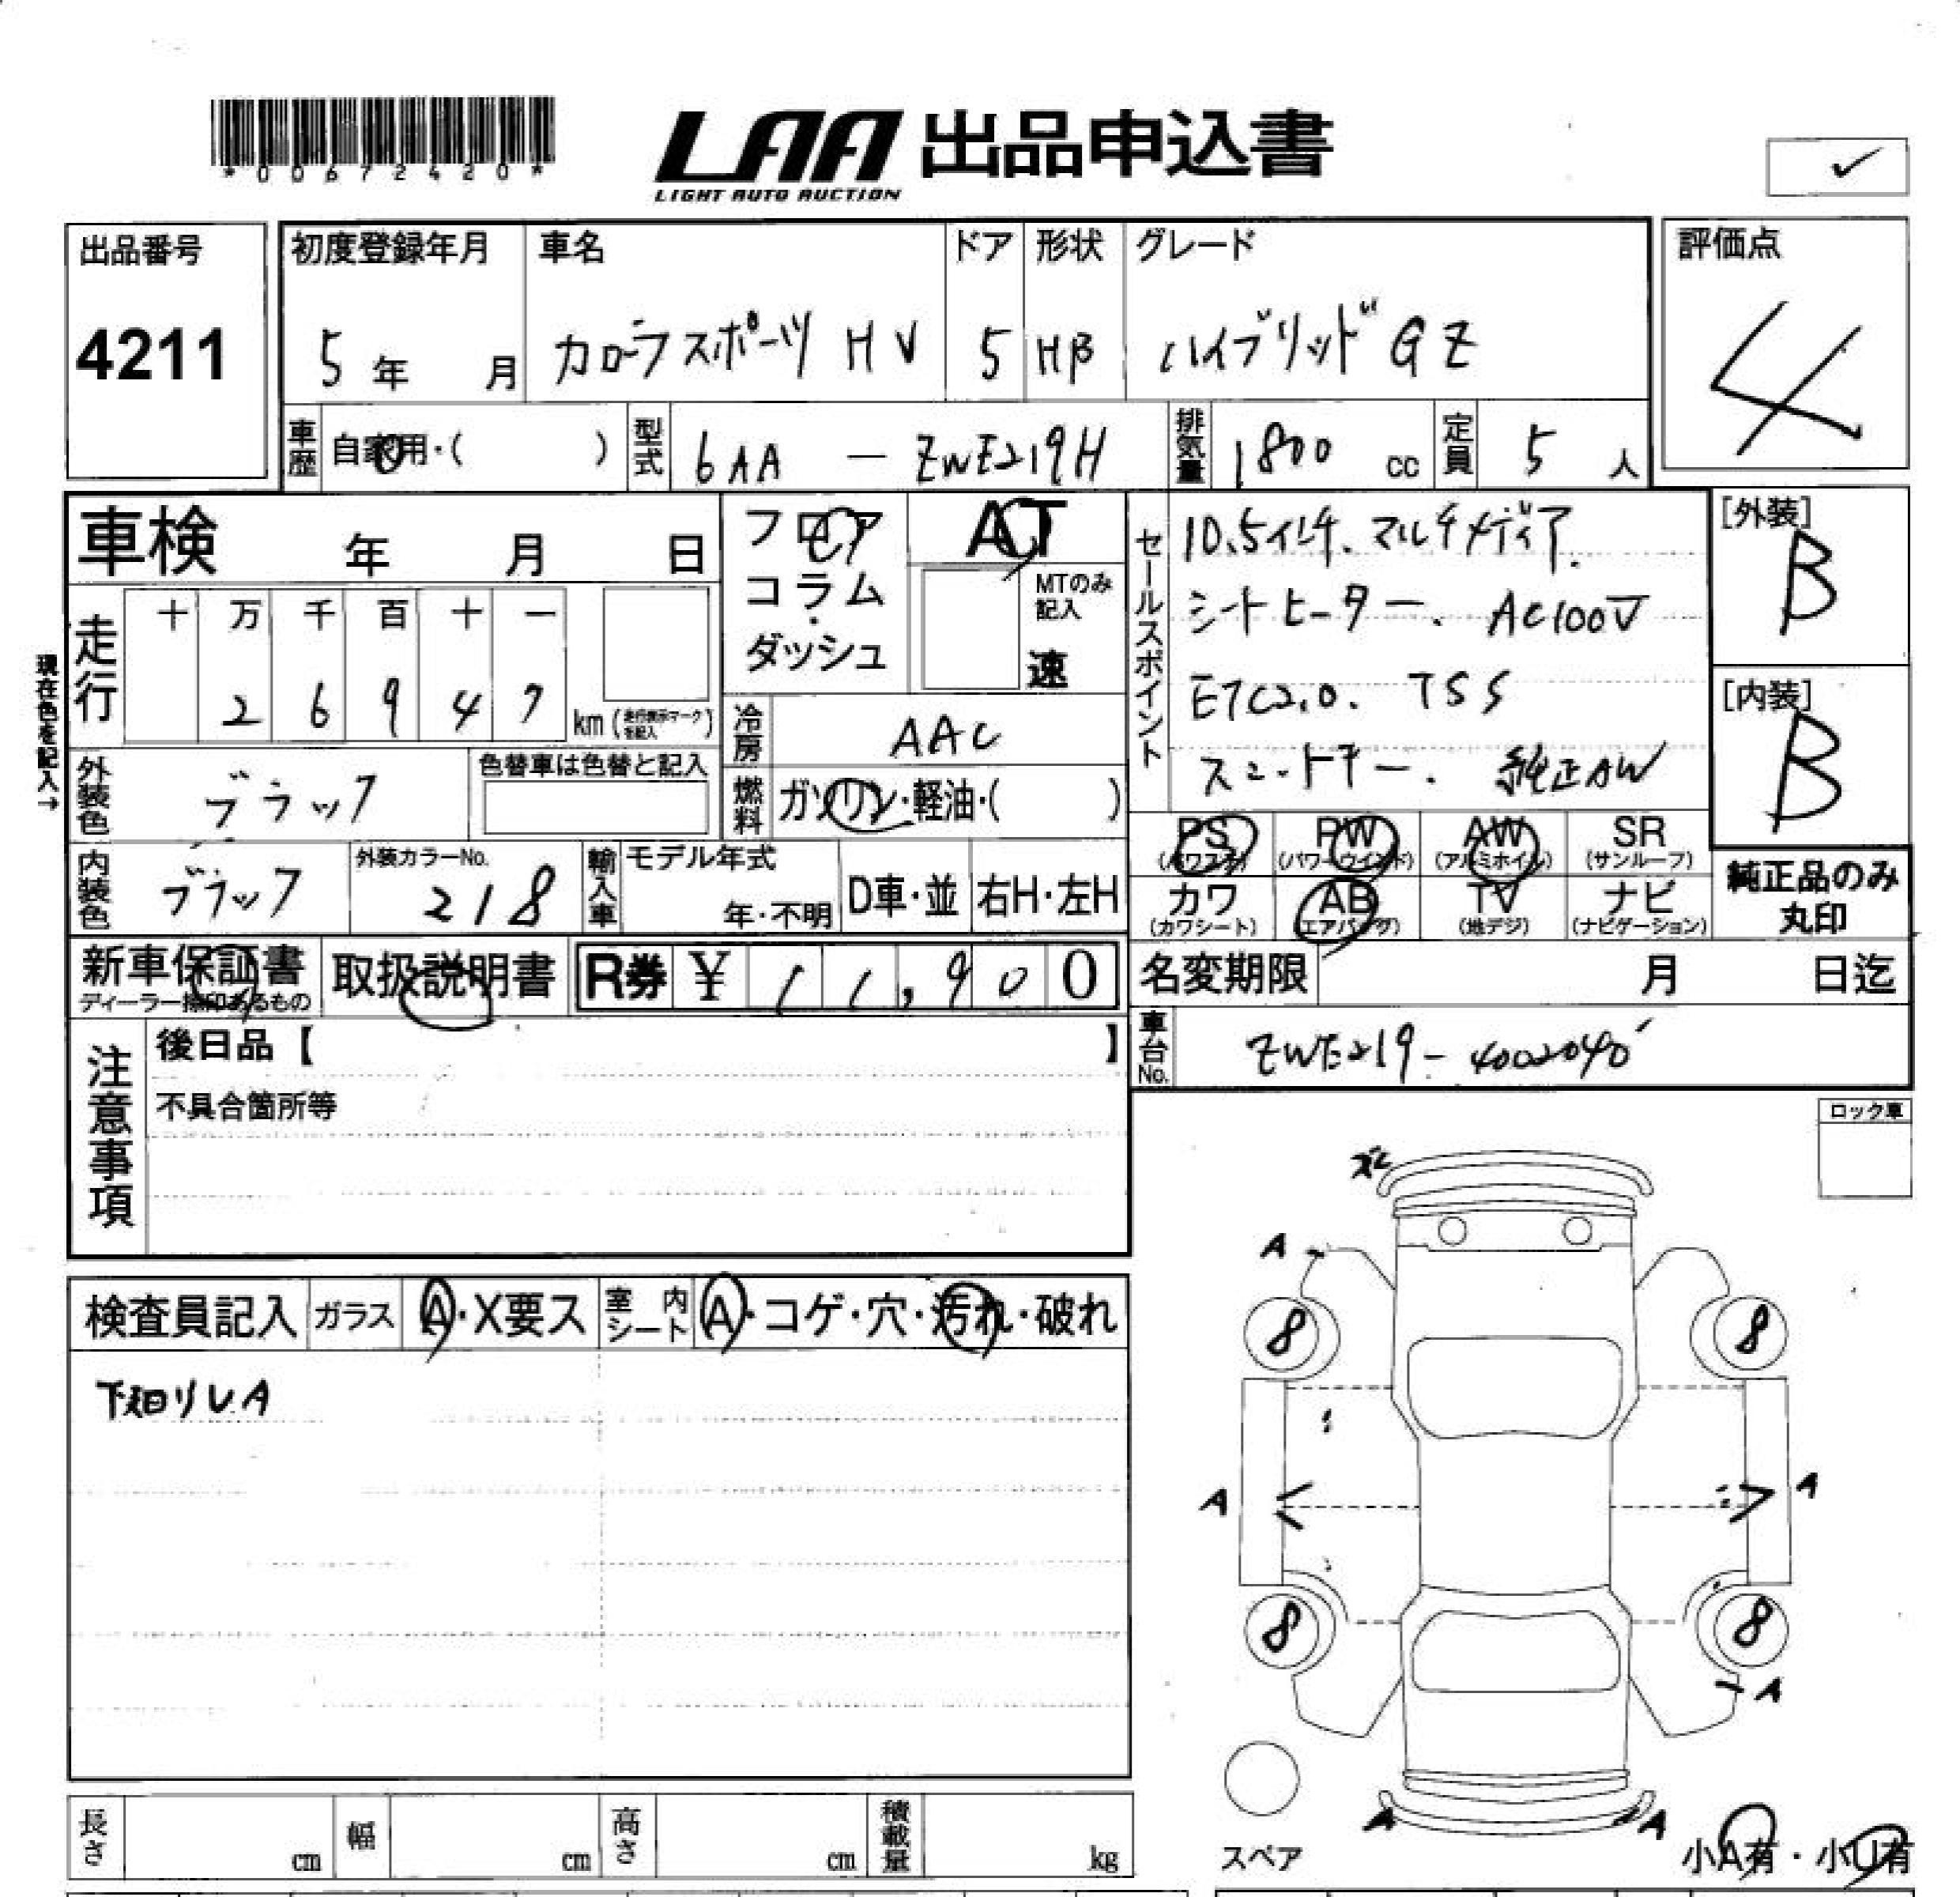 *00672420*
LAA 出品申込書
LIGHT AUTO AUCTION
✓
出品番号
4211
初度登録年月
5年 月
車名
カローラスポーツ HV
ドア
5
形状
HB
グレード
ハイブリッド GZ
評価点
4
車歴
自家用・( )
型式
6AA － ZWE219H
排気量
1800 cc
定員
5 人
車検 年 月 日
フロア
コラム
・
ダッシュ
AT
MTのみ
記入
速
セールスポイント
10.5インチ、マルチメディア、
シートヒーター、AC100V
ETC2.0、TSS
スマートキー、純正AW
[外装]
B
[内装]
B
現在色を記入→
走行
十 万 千 百 十 一
2 6 9 4 7
km (走行表示マークを記入)
冷房
AAC
外装色
ブラック
色替車は色替と記入
燃料
ガソリン・軽油・( )
PS
(パワステ)
PW
(パワーウインド)
AW
(アルミホイル)
SR
(サンルーフ)
内装色
ブラック
外装カラーNo.
218
輸入車
モデル年式
年・不明
D車・並
右H・左H
カワ
(カワシート)
AB
(エアバッグ)
TV
(地デジ)
ナビ
(ナビゲーション)
純正品のみ
丸印
新車保証書
ディーラー捺印あるもの
取扱説明書
R券 ¥ 11,900
名変期限 月 日迄
注意事項
後日品【 】
不具合箇所等
車台No.
ZWE219-4002040
ロック車
検査員記入
ガラス
A・X要ス
室内シート
A・コゲ・穴・汚れ・破れ
下廻りレA
ズレ
A
8
8
A
A
8
8
A
A
A
スペア
小A有・小U有
長さ
cm
幅
cm
高さ
cm
積載量
kg